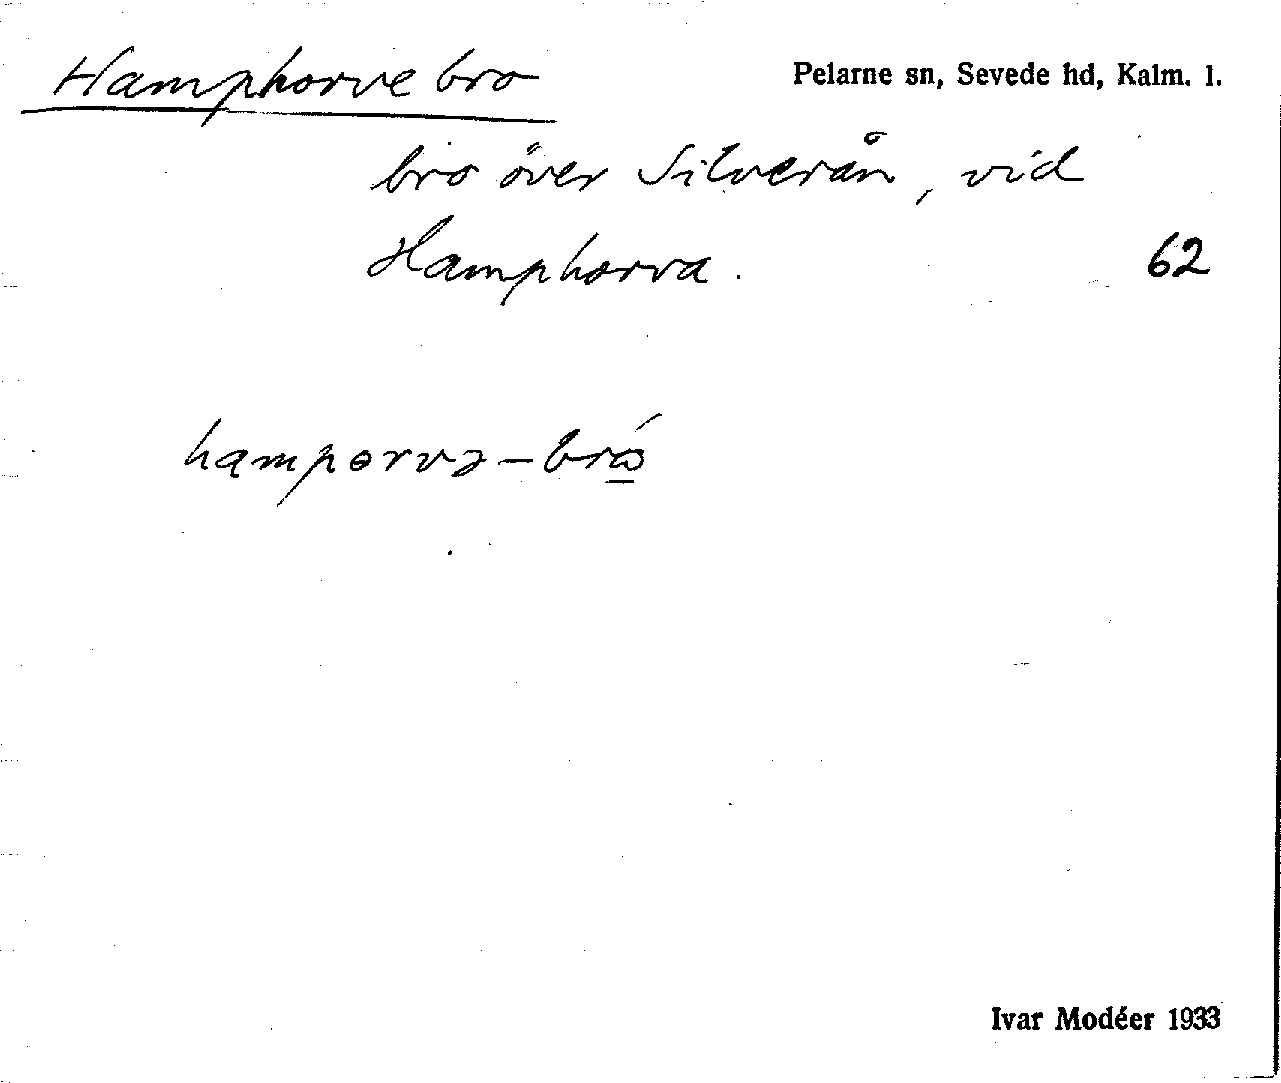 Hamphorve bro
Pelarne sn, Sevede hd, Kalm. l.
bro över Silverån, vid
Hamphorva.
62
hampɵrvə-bró̲
Ivar Modéer 1933